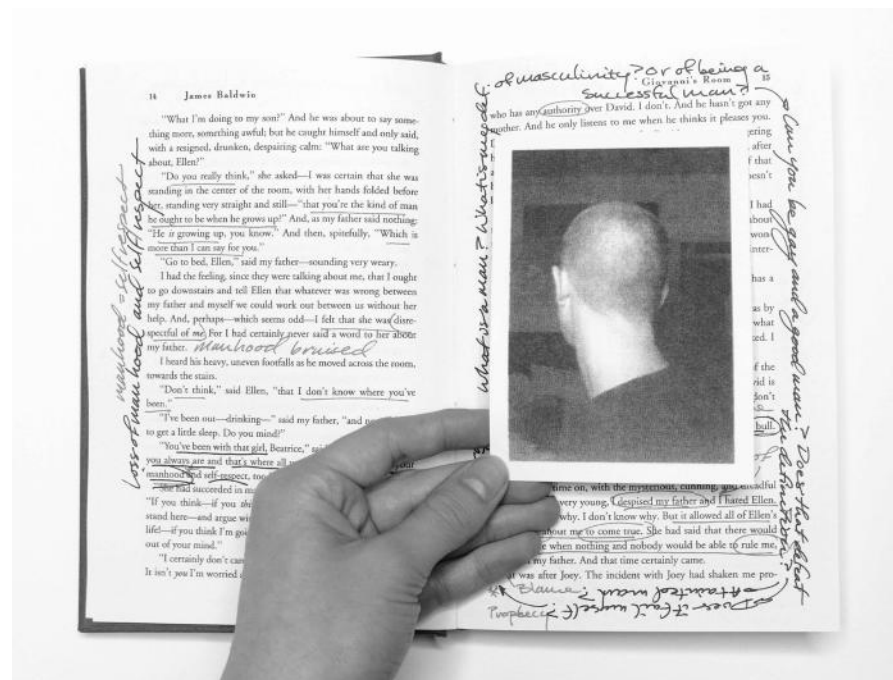 14 James Baldwin
"What I'm doing to my son?" And he was about to say some-
thing more, something awful; but he caught himself and only said,
with a resigned, drunken, despairing calm: "What are you talking
about, Ellen?"
"Do you really think," she asked—I was certain that she was
standing in the center of the room, with her hands folded before
her, standing very straight and still—"that you're the kind of man
he ought to be when he grows up?" And, as my father said nothing:
"He is growing up, you know." And then, spitefully, "Which is
more than I can say for you."
"Go to bed, Ellen," said my father—sounding very weary.
I had the feeling, since they were talking about me, that I ought
to go downstairs and tell Ellen that whatever was wrong between
my father and myself we could work out between us without her
help. And, perhaps—which seems odd—I felt that she was disre-
spectful of me. For I had certainly never said a word to her about
my father. manhood bruised
I heard his heavy, uneven footfalls as he moved across the room,
towards the stairs.
"Don't think," said Ellen, "that I don't know where you've
been."
"I've been out—drinking—" said my father, "and
to get a little sleep. Do you mind?"
"You've been with that girl, Beatrice,"
you always are and that's where all
manhood and self-respect, too
She had succeeded in
"If you think—if you
stand here—and argue
life!—if you think I'm
out of your mind."
"I certainly don't
It isn't you I'm worried
manhood = self respect
Loss of manhood and self respect
Giovanni's Room 15
of masculinity? or of being a
successful man?
What is a man? What is
who has any authority over David. I don't. And he hasn't got any
mother. And he only listens to me when he thinks it pleases you.
after
f that
esn't
I had
about
won
nter-
has a
as by
what
ed. I
f the
vid is
don't
bull.
time on, with the mysterious, cunning, and dreadful
very young, I despised my father and I hated Ellen.
why. I don't know why. But it allowed all of Ellen's
about me to come true. She had said that there would
when nothing and nobody would be able to rule me,
my father. And that time certainly came.
was after Joey. The incident with Joey had shaken me pro-
Can you be gay and a good man? Does that defeat
the definition?
Does it fail myself?
A tainted man?
Blame
Prophecy?